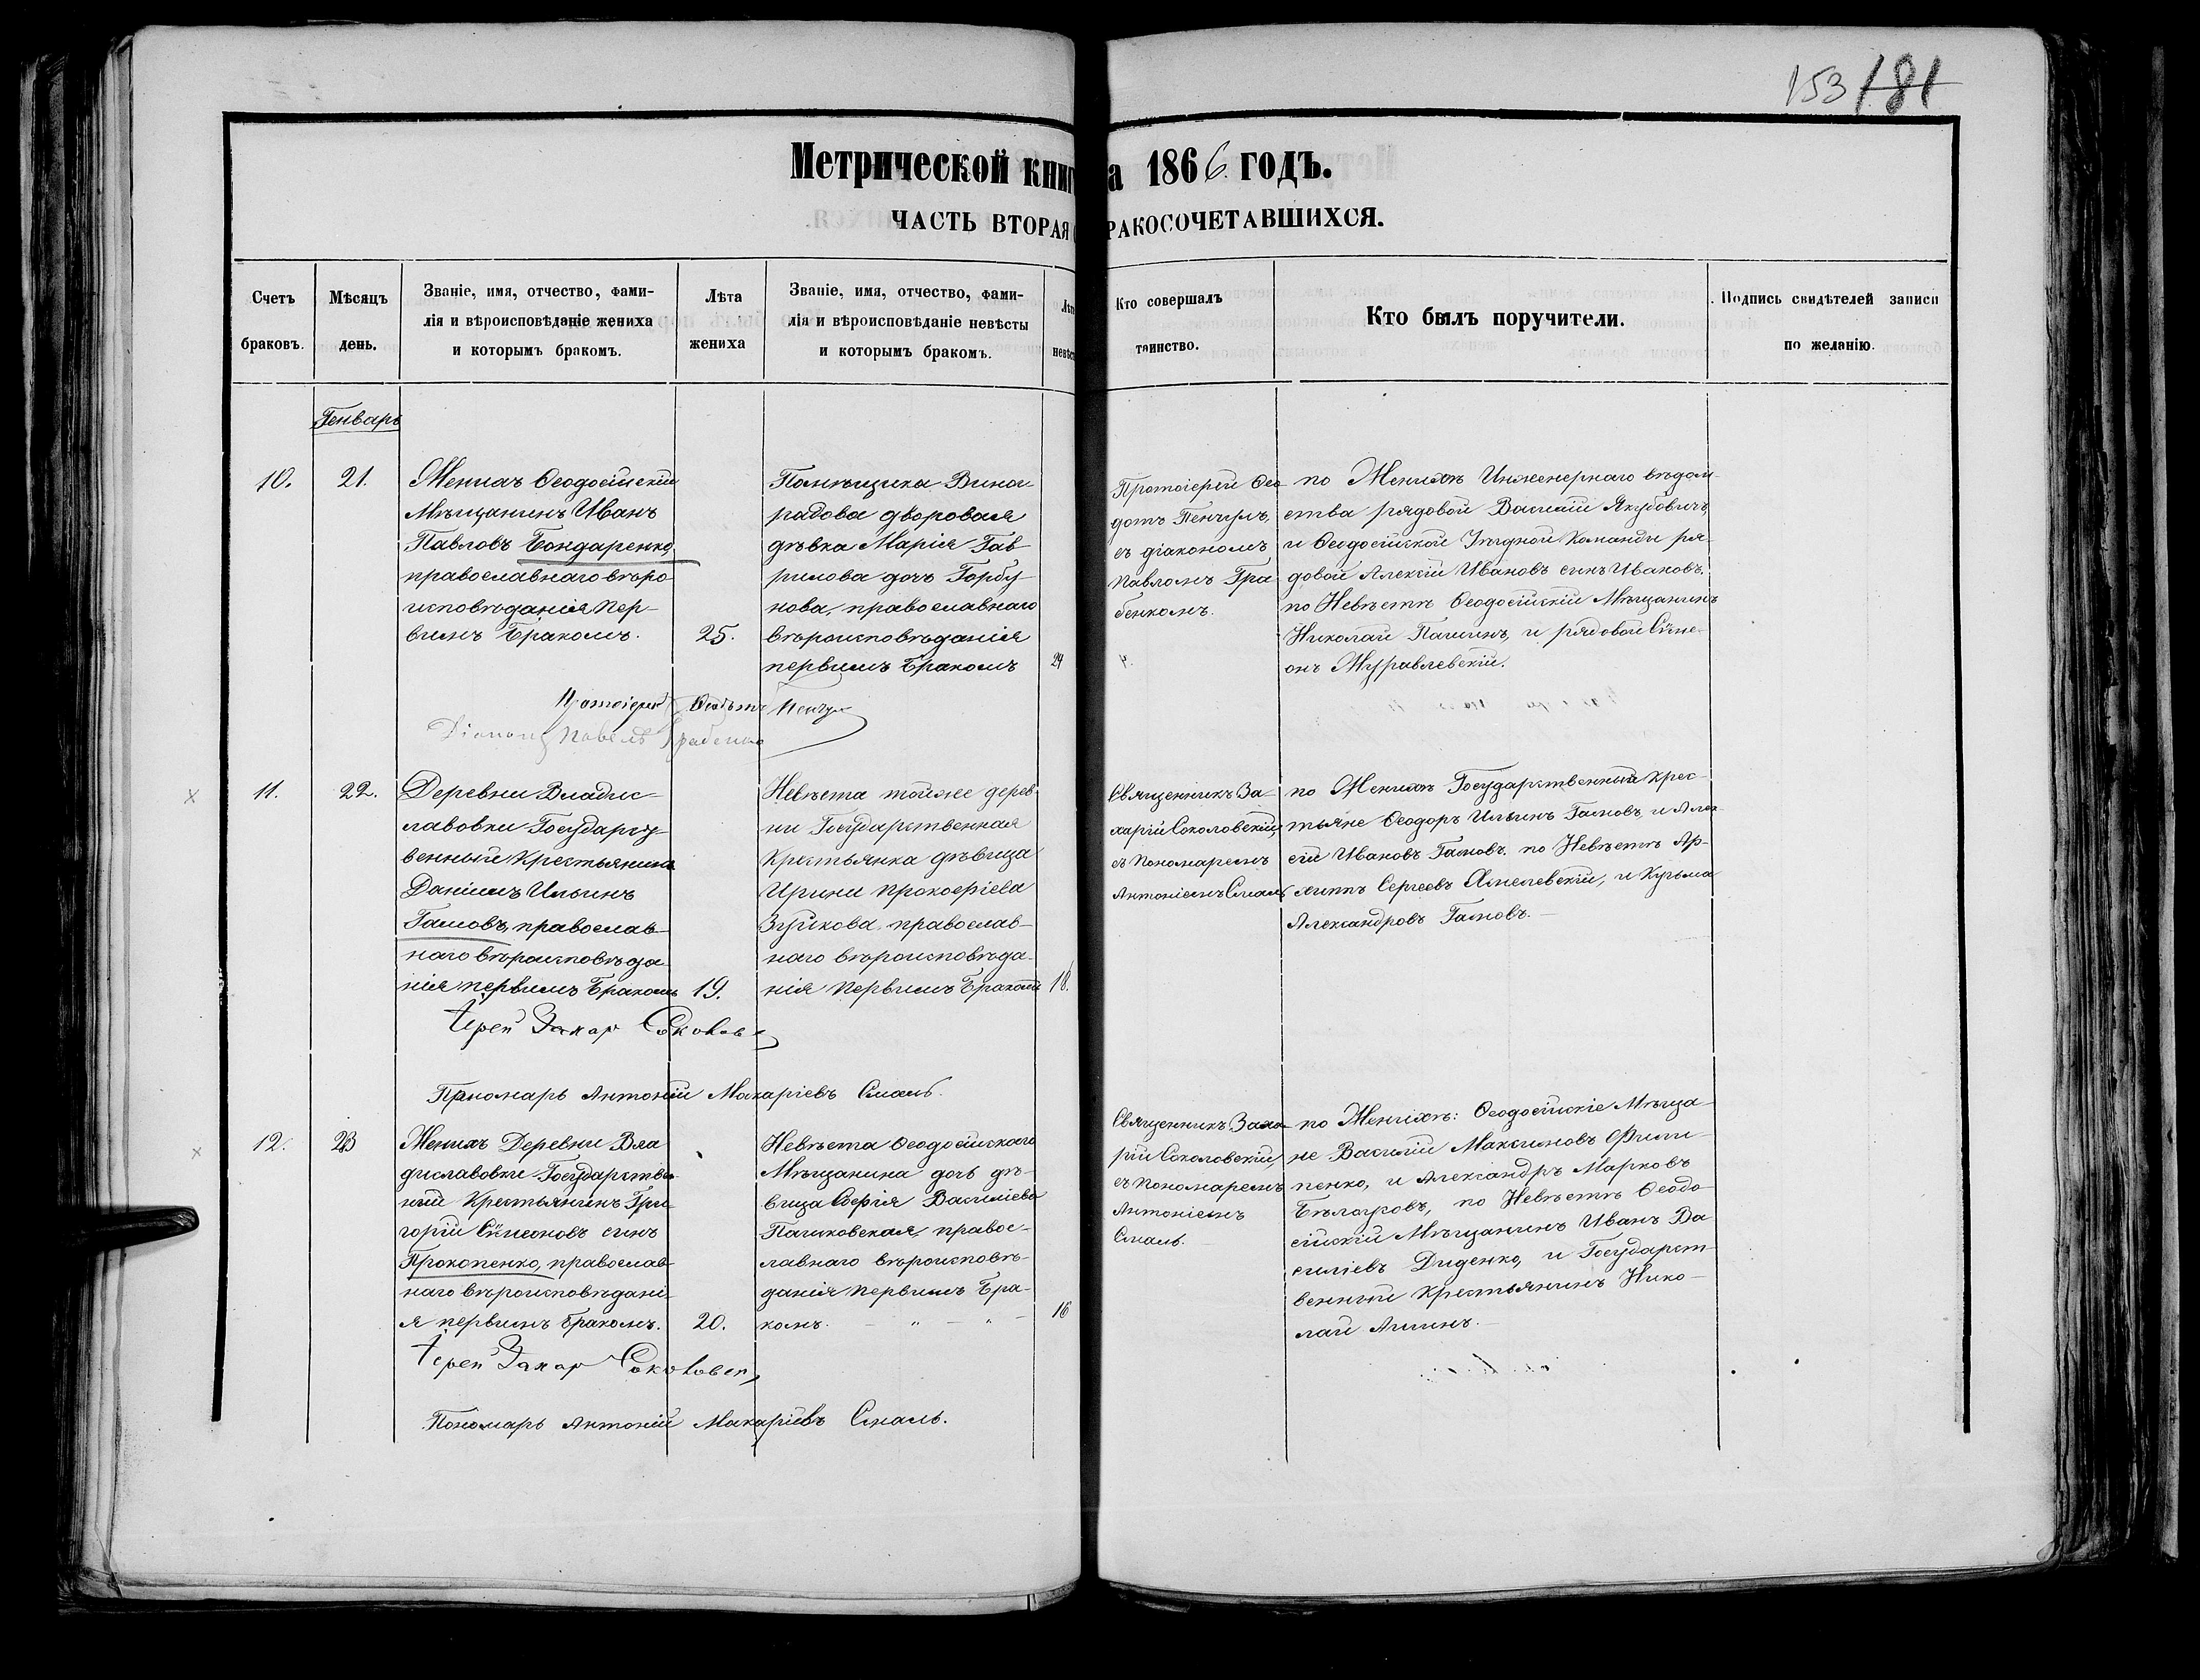 153 181
Метрической книг а 1866 годъ.
ЧАСТЬ ВТОРАЯ РАКОСОЧЕТАВШИХСЯ.
Счетъ
браковъ.
Мѣсяцъ
день.
Званіе, имя, отчество, фами-
лія и вѣроисповѣданіе жениха
и которымъ бракомъ.
Лѣта
жениха
Званіе, имя, отчество, фами-
лія и вѣроисповѣданіе невѣсты
и которымъ бракомъ.
Кто совершалъ
таинство.
Кто былъ поручители.
Подпись свидѣтелей записи
по желанію.
Генварь
10.
21.
Женихъ Ѳеодосійскій
Мѣщанинъ Иванъ
Павловъ Бондаренко,
православнаго вѣро-
исповѣданія пер-
вымъ бракомъ.
25.
Помѣщика Виног-
радова дворовая
дѣвка Марія Гав-
рилова дочь Горбу-
нова, православнаго
вѣроисповѣданія
первымъ бракомъ
24
Протоіерей Ѳео-
дотъ Пенчулъ,
съ діакономъ
Павломъ Гра-
бенкомъ.
по Женихѣ Инженернаго вѣдом-
ства рядовой Василій Якубовичъ,
и Ѳеодосійской Уѣздной Команды ря-
довой Алексій Ивановъ сынъ Ивановъ.
по Невѣстѣ Ѳеодосійскій Мѣщанинъ
Николай Пашинъ, и рядовой Сѵме-
онъ Журавлевскій.
Протоіерей Ѳеодотъ Пенчул
Діаконъ Павелъ Грабенко
11.
22.
Деревни Владис-
лавовки Государст-
венный Крестьянинъ
Даніилъ Ильинъ
Гамовъ, православ-
наго вѣроисповѣда-
нія первымъ бракомъ
19.
Невѣста тойже дерев-
ни Государственная
Крестьянка дѣвица
Ирина Прокофіева
Зуйкова, православ-
наго вѣроисповѣда-
нія первымъ бракомъ
18.
Священникъ За-
харій Соколовскій,
съ Пономаремъ
Антоніемъ Смаль
по Женихѣ Государственный Крес-
тьяне Ѳеодоръ Ильинъ Гамовъ, и Алек-
сій Ивановъ Гамовъ. по Невѣстѣ Ар-
хиппъ Сергеевъ Хмелевскій, и Кузьма
Александровъ Гамовъ.
Іерей Захар Соколов
Пономарь Антоній Макаріевъ Смаль.
12.
23
Женихъ Деревни Вла-
диславовки Государствен-
ный Крестьянинъ Гри-
горій Сѵмеоновъ сынъ
Прокопенко, православ-
наго вѣроисповѣдані-
я первымъ бракомъ.
20.
Невѣста Ѳеодосійскаго
Мѣщанина дочь дѣ-
вица Софія Василіева
Пашковская, правос-
лавнаго вѣроисповѣ-
данія первымъ бра-
комъ.
16
Священникъ Заха-
рій Соколовскій,
съ Пономаремъ
Антоніемъ
Смаль.
по Женихѣ: Ѳеодосійскіе Мѣща-
не Василій Максимовъ Филип-
пенко, и Александръ Марковъ
Бѣлоусовъ, по Невѣстѣ Ѳеодо-
сійскій Мѣщанинъ Иванъ Ва-
силіевъ Диденко, и Государст-
венный Крестьянинъ Нико-
лай
Іерей Захар Соколовск
Пономарь Антоній Макаріевъ Смаль.